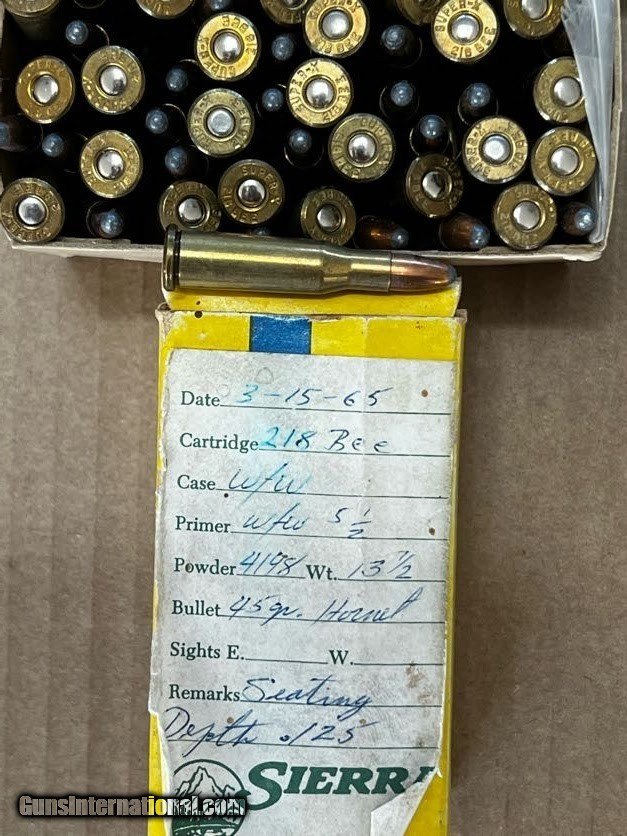 SUPER-X
218 BEE
Date 3-15-65
Cartridge 218 Bee
Case w/w
Primer w/w 5 1/2
Powder 4198 Wt. 13 1/2
Bullet 45 gr. Hornet
Sights E. W.
Remarks Seating
Depth .125
SIERR
GunsInternational.com